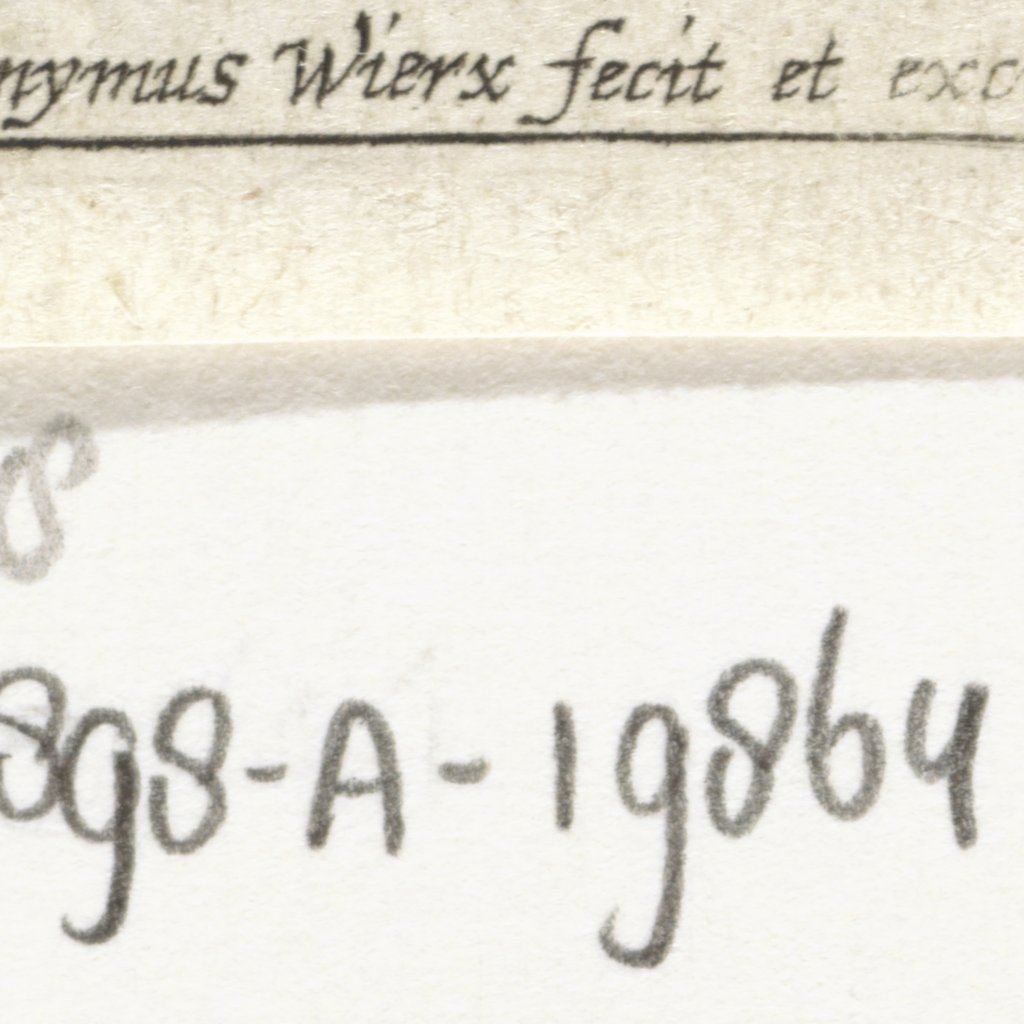 nymus Wierx fecit et exc
8
898-A-19864